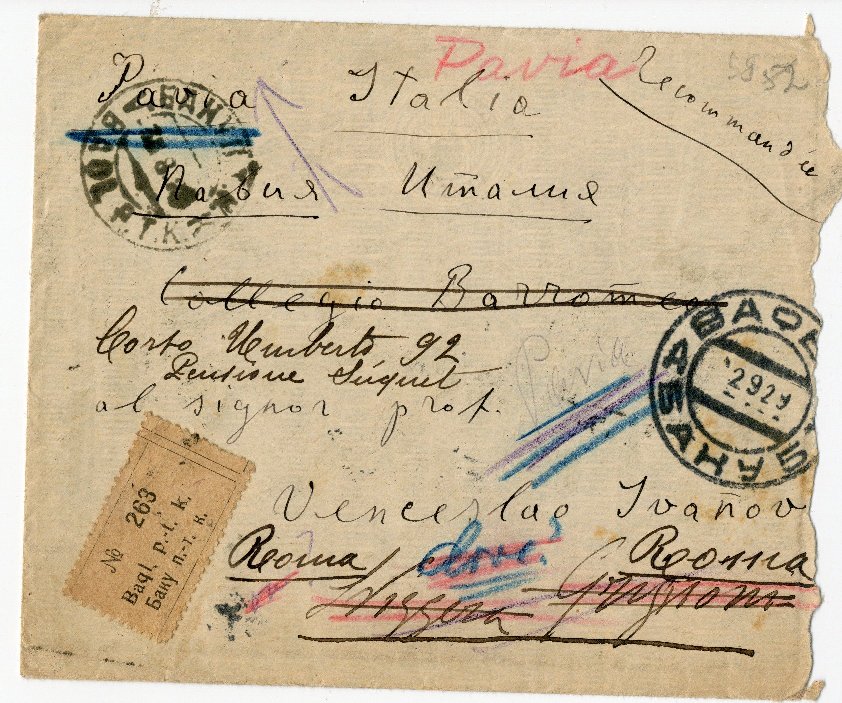 Pavia Italia Pavia Recommandée 5952
Павия Италия
Collegio Barromeo
Corso Umberto 92
Pensione
al signor prof. Pavia
Venceslao Ivanov
Roma dove? Roma
БАКУ
П.Т.К.
2929
БАКУ
№ 263
Baqı p.-t. k.
Баку п.-т. к.